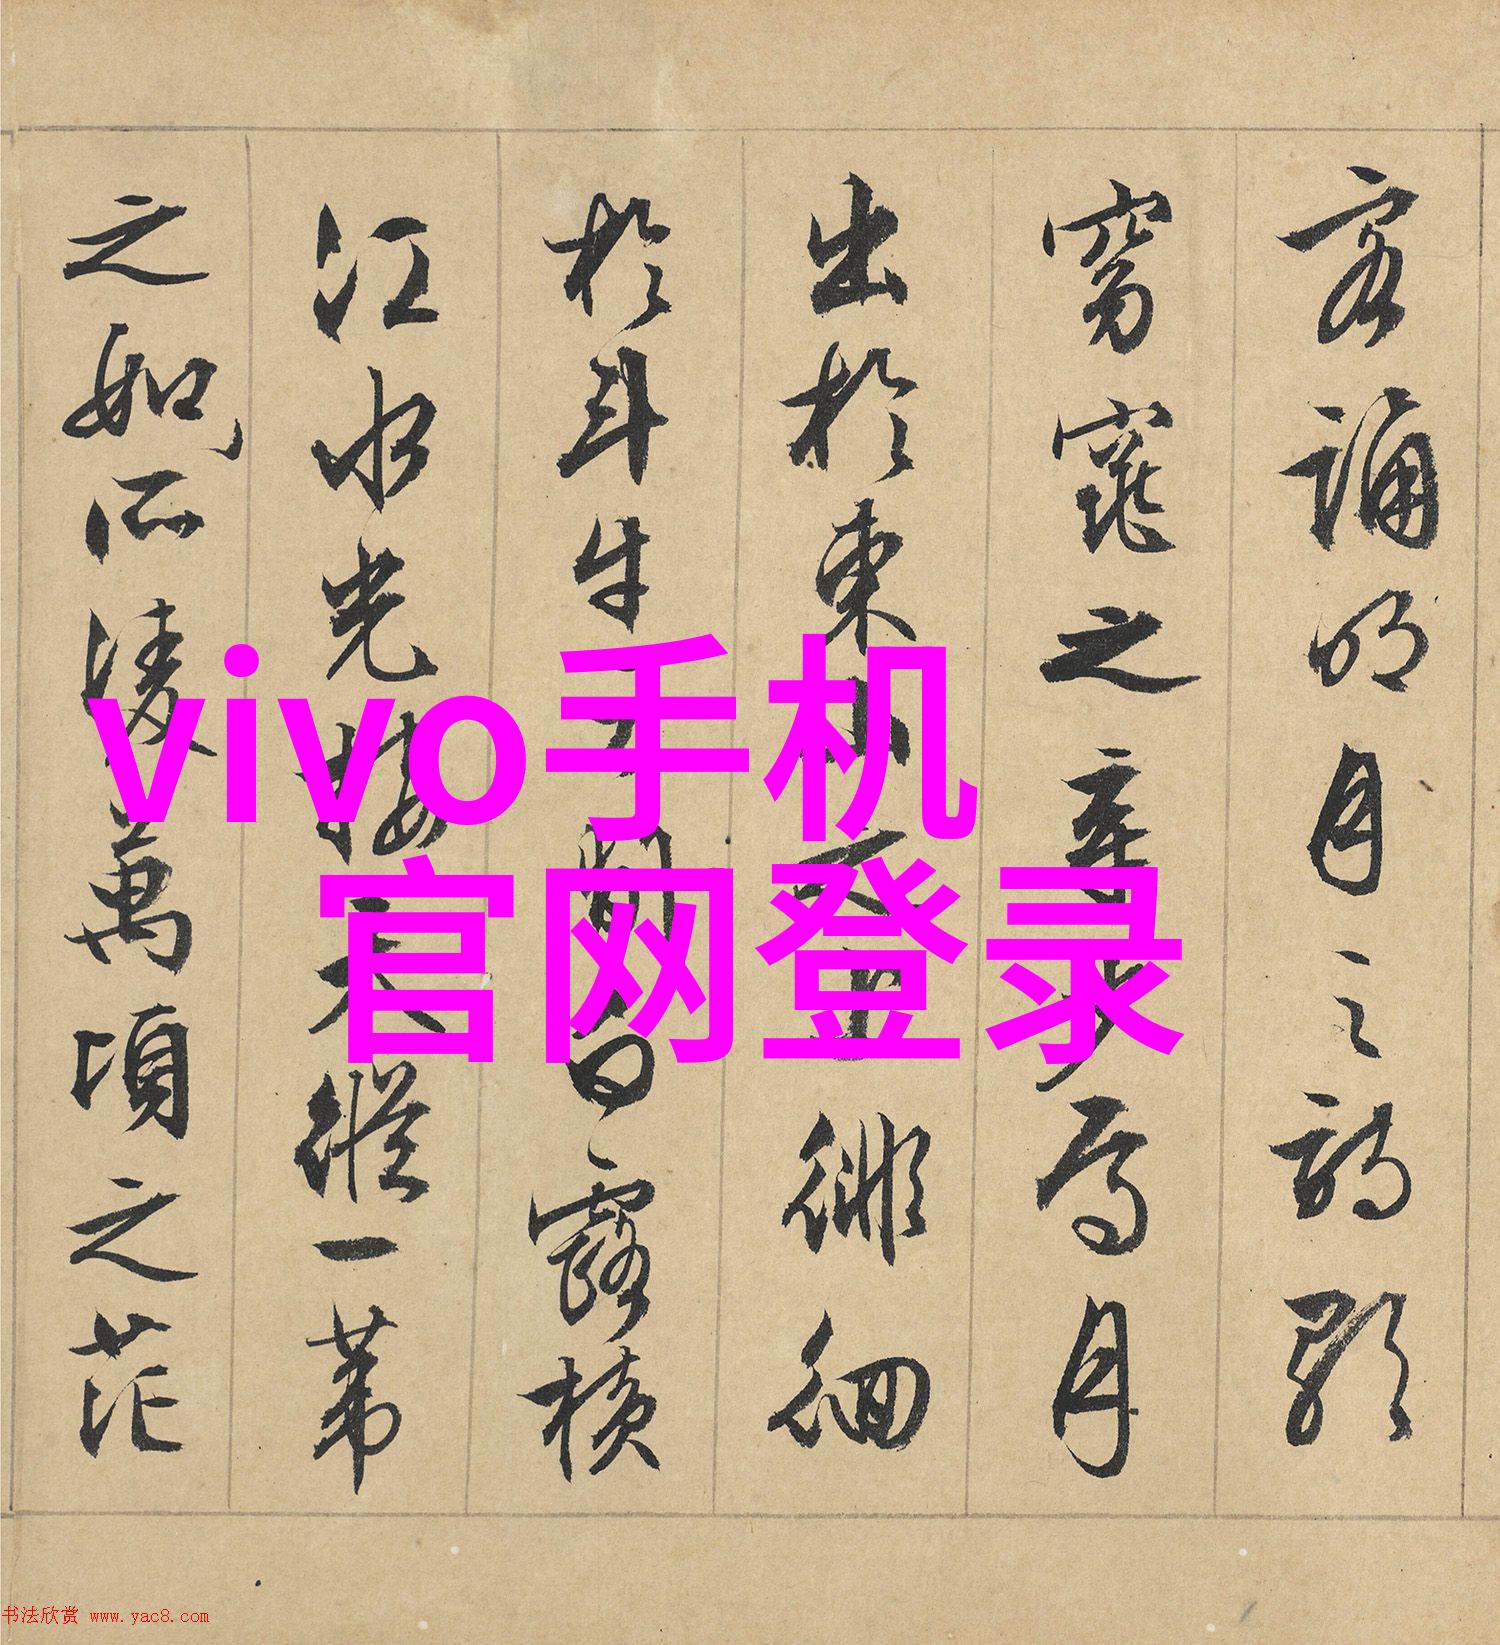 客誦明月之詩歌
窈窕之章少焉月
出於東山之上徘徊
於斗牛之間白露橫
江水光接天縱一葦
之如所凌萬頃之茫
vivo手机
官网登录
书法欣赏 www.yac8.com